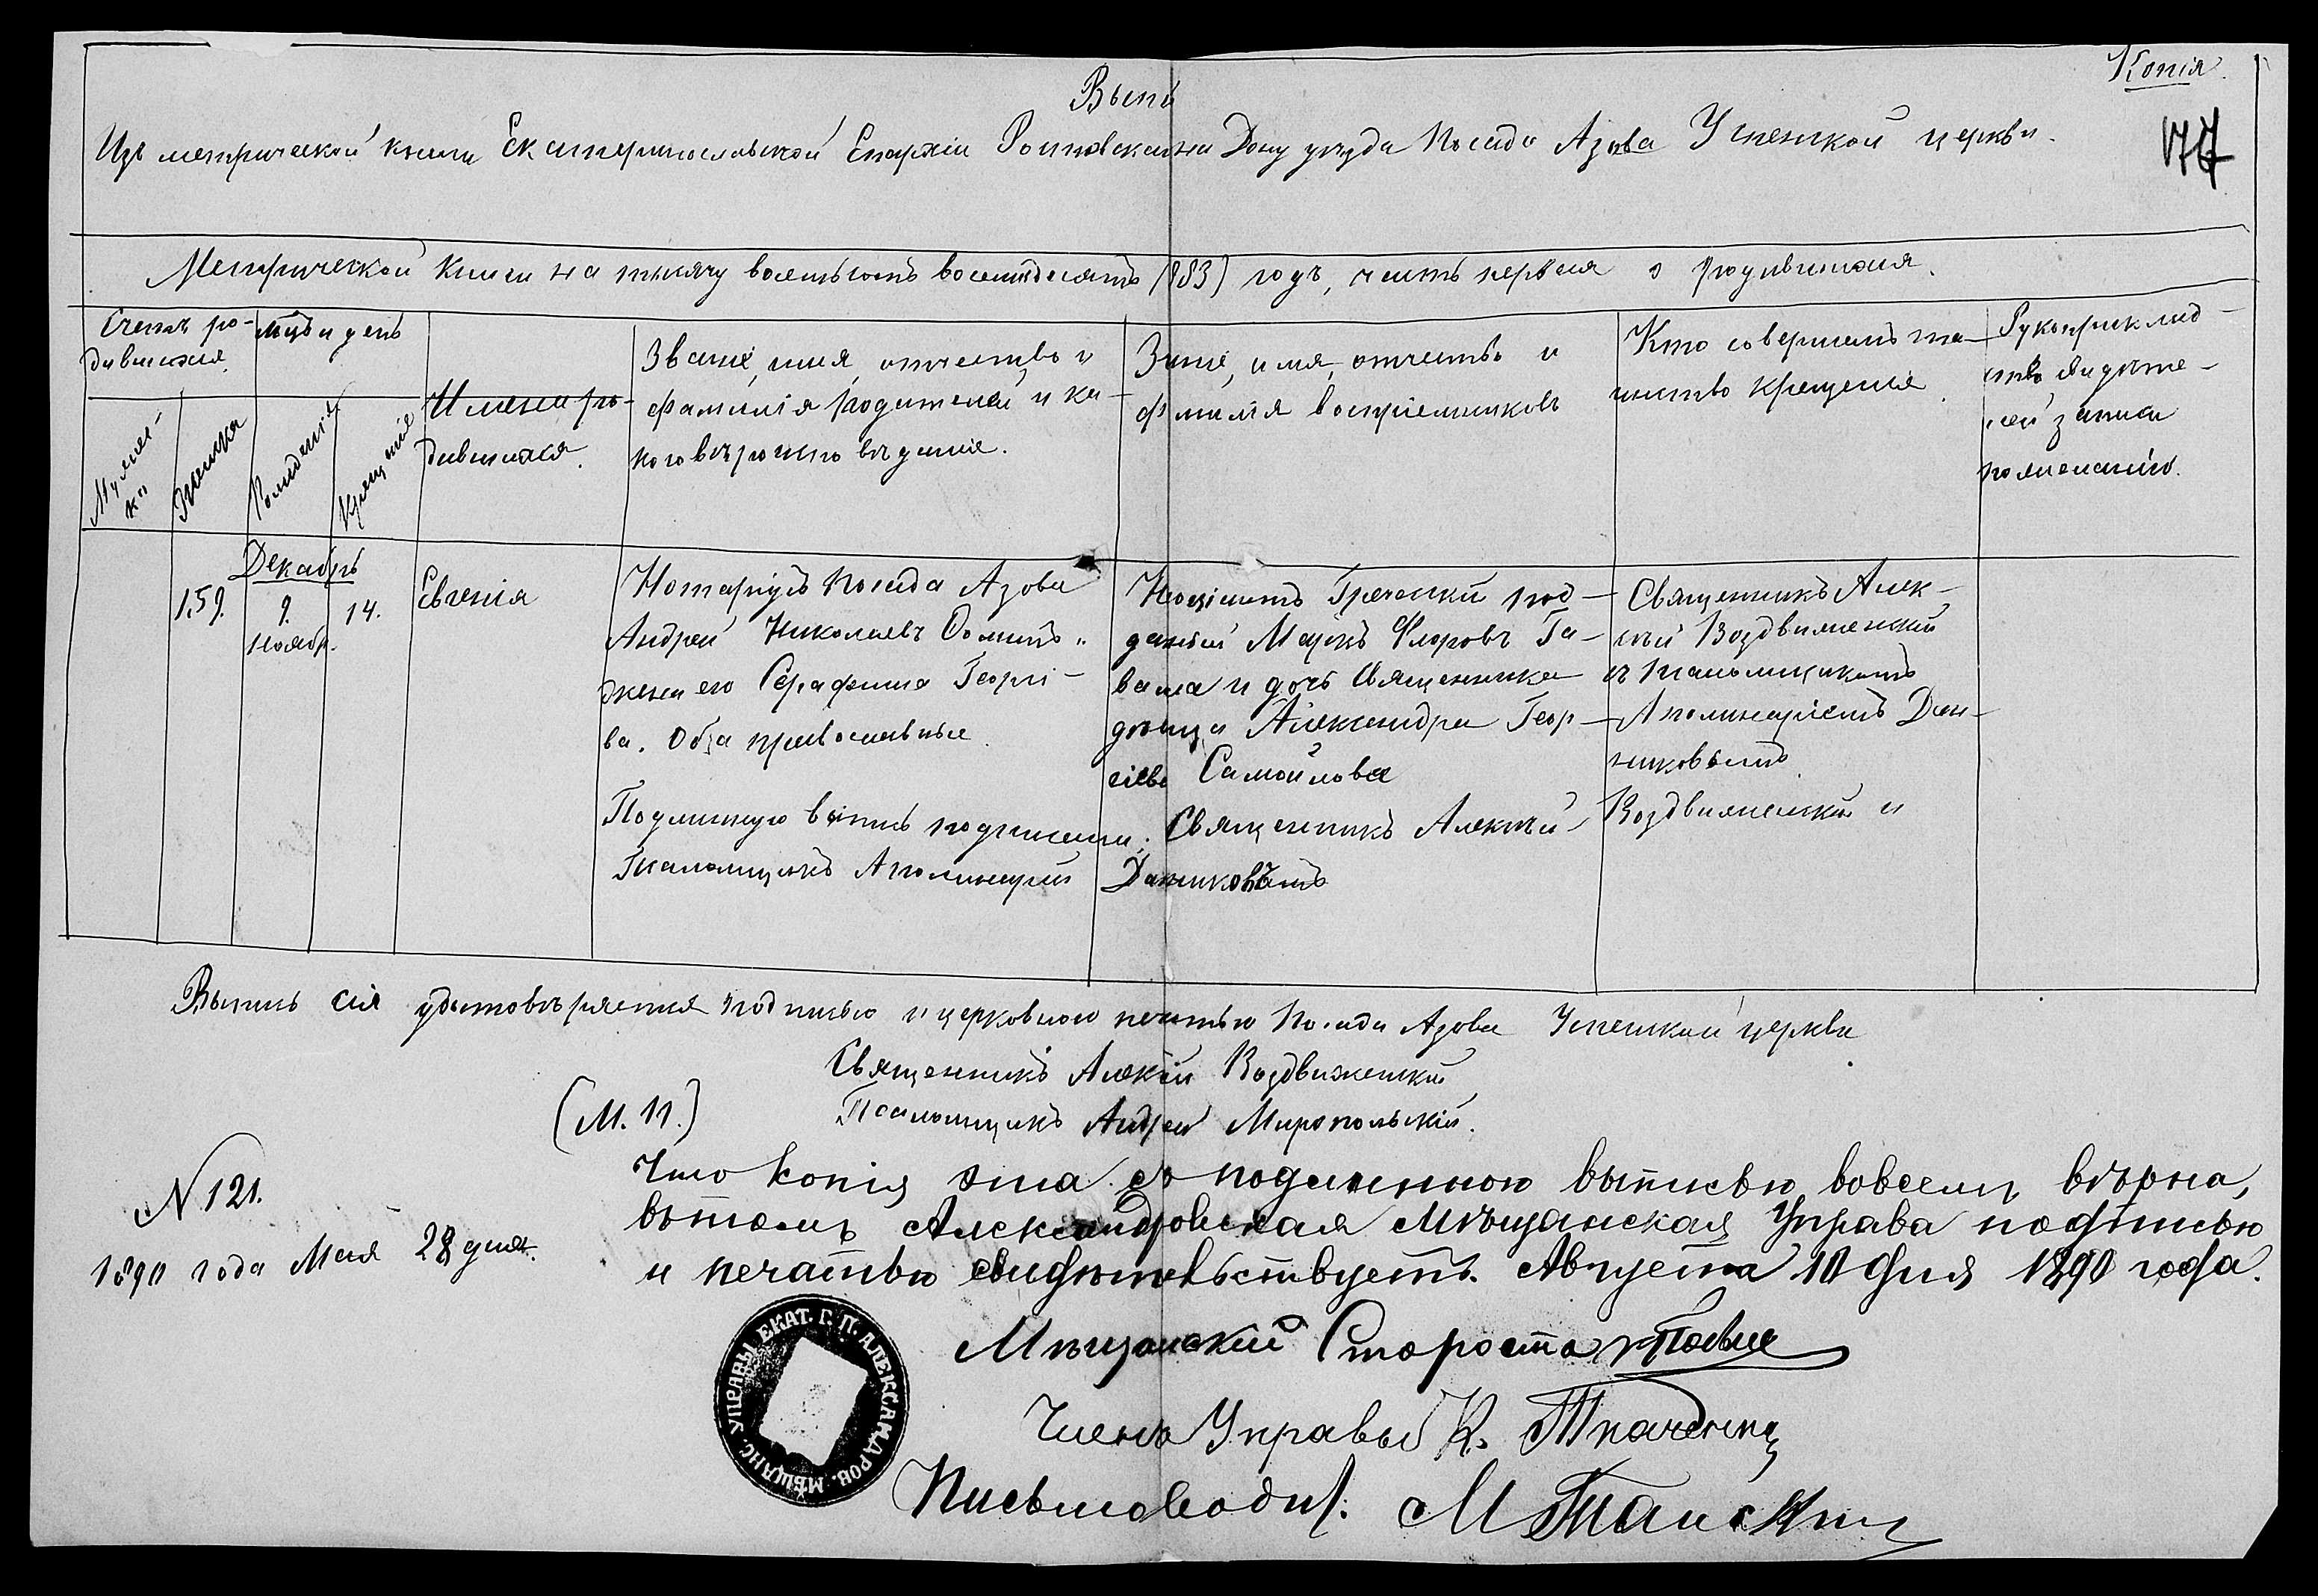 Копія.
Выпи
177
Изъ метрической книги Екатеринославской Епархіи Ростовскаго на Дону уѣзда Посада Азова Успенской церкви.
Метрической книги на тысячу восемьсотъ восемьдесятъ (883) годъ, часть первая о родившихся.
Счетъ родившихся.
Мужеска
Женска
Мцъ и день
Рожденія
Крещенія
Имена ро-
дившихся.
Званіе, имя, отчество и
фамилія родителей и ка-
кого вѣроисповѣданія.
Званіе, имя, отчество и
фамилія воспріемниковъ
Кто совершалъ та-
инство крещенія
Рукоприклад-
ство свидѣте-
лей записи
по желанію.
Декабрь
159. 9. 14.
Ноябр.
Евгенія
Нотаріусъ посада Азова
Андрей Николаевъ
жена его Серафима Георгі-
ва. Оба православные.
Греческій под-
данный Маркъ Флоровъ Га-
вала и дочь Священника
дѣвица Александра Геор-
гіева Самойлова
Священникъ Алек-
сѣй Воздвиженскій
съ псаломщикомъ
Аполинаріемъ Дан-
никовымъ
Подлинную выпись подписали: Священникъ Алексѣй Воздвиженскій и
Псаломщикъ Аполинарій
Выпись сія удостовѣряется подписью и церковною печатью Посада Азова Успенской церкви
Священникъ Алексѣй Воздвиженскій
(М. П.) Псаломщикъ Андрей Миропольскій.
N 121.
1890 года Мая 28 дня.
Что копія эта съ подлинною выписью вовсемъ вѣрна,
въ томъ Александровская Мѣщанская Управа подписью
и печатью свидѣтельствуетъ. Августа 10 дня 1890 года.
Мѣщанскій Староста
Членъ Управы К. Ткаченко
Письмоводит. М
МѢЩАНС. УПРАВЫ ЕКАТ. Г. П. АЛЕКСАНДРОВ.